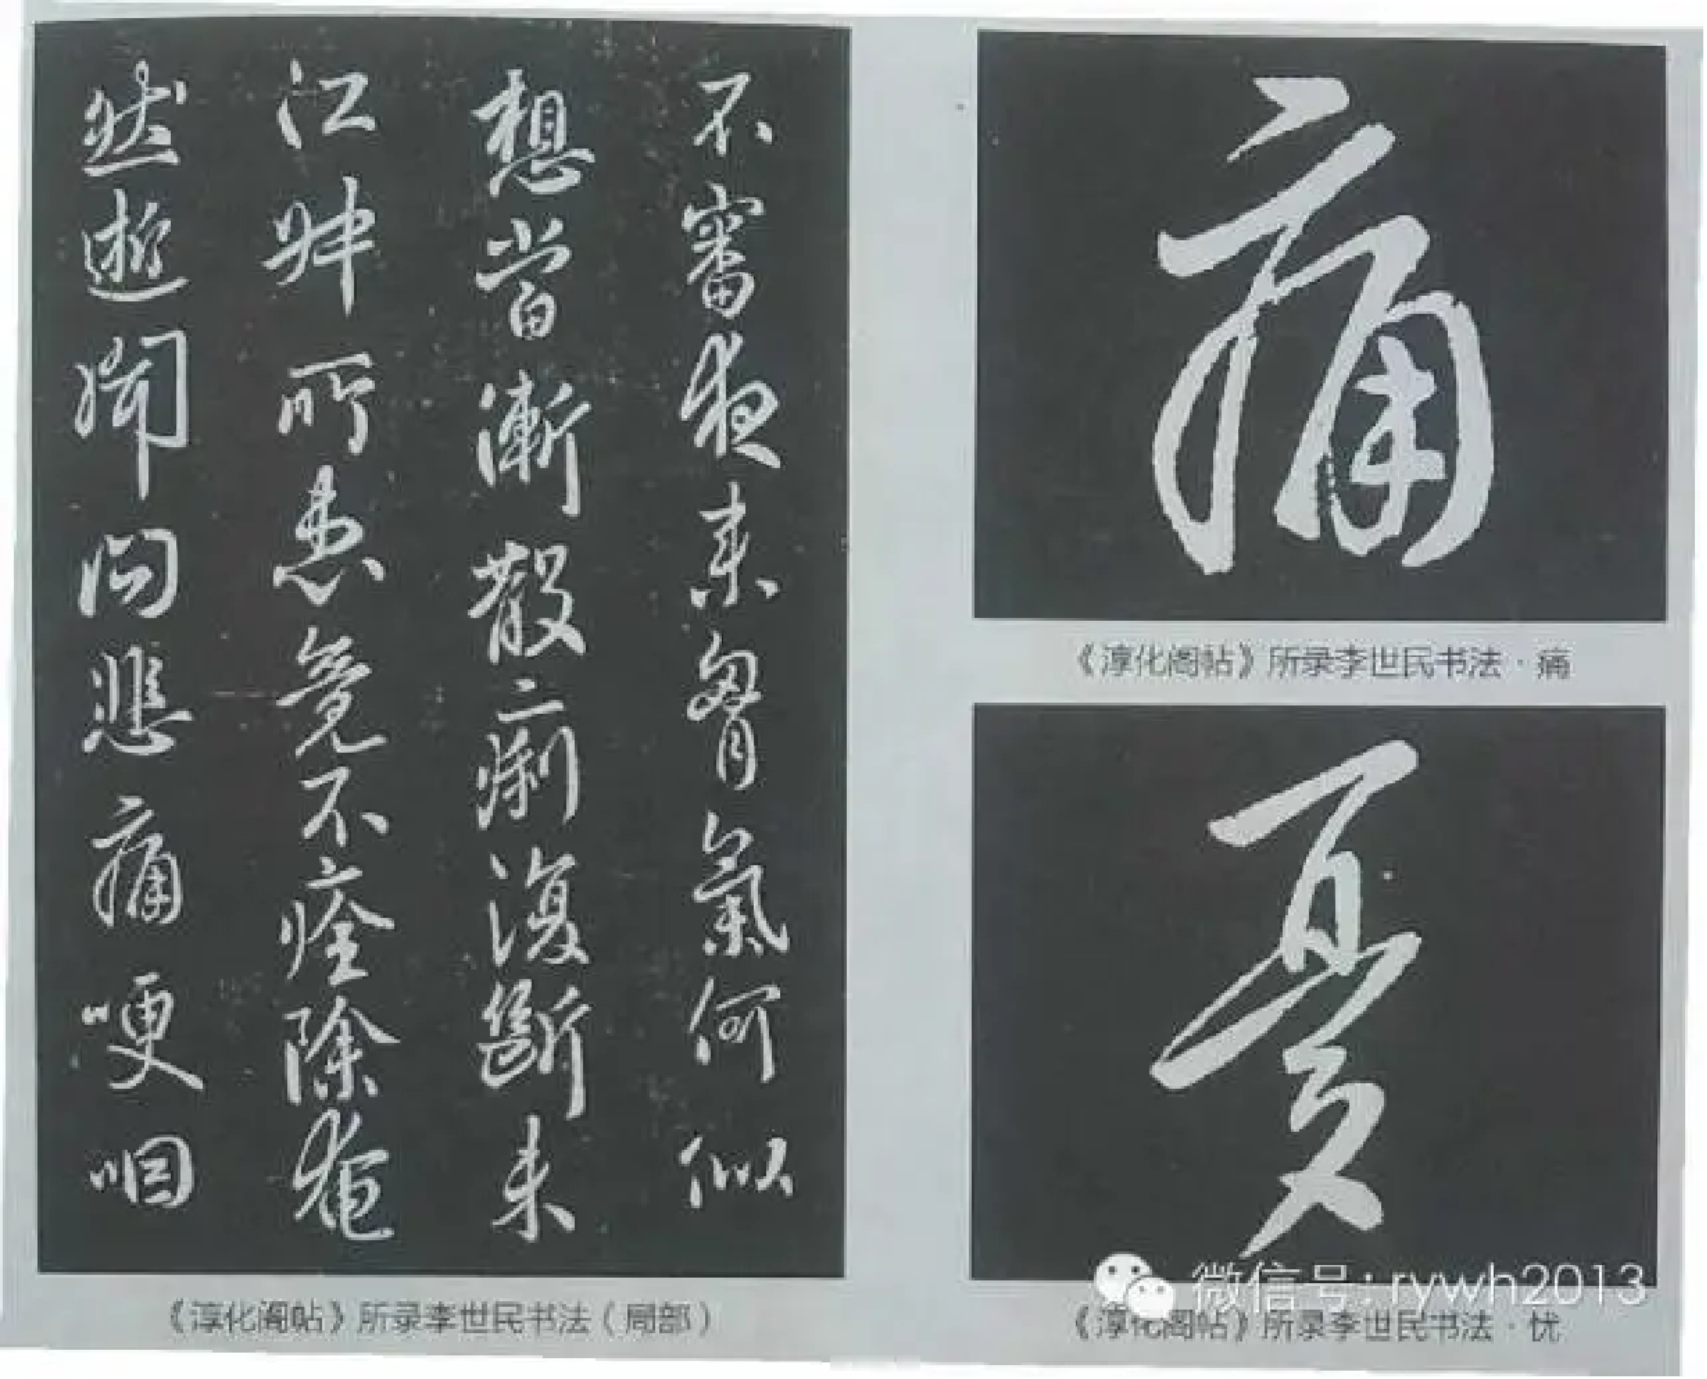 不審夜来胷氣何似
想當漸散痢復斷未
江叔所患竟不痊除奄
然逝謝問悲痛哽咽
《淳化阁帖》所录李世民书法（局部）
痛
《淳化阁帖》所录李世民书法·痛
憂
《淳化阁帖》所录李世民书法·忧
微信号: rywh2013